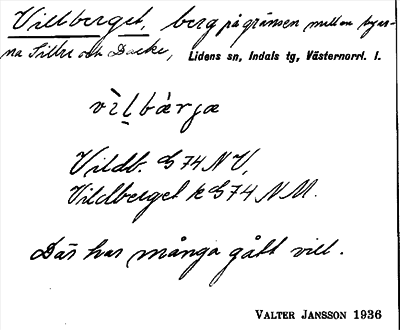 Villberget, berg på gränsen mellan byar-
na Sillre och Dacke, Lidens sn, Indals tg, Västernorrl. l.
vìl̬bær̀jæ
Vildb. G74 NV,
Vildberget k G74 NM.
Där har många gått vill.
VALTER JANSSON 1936